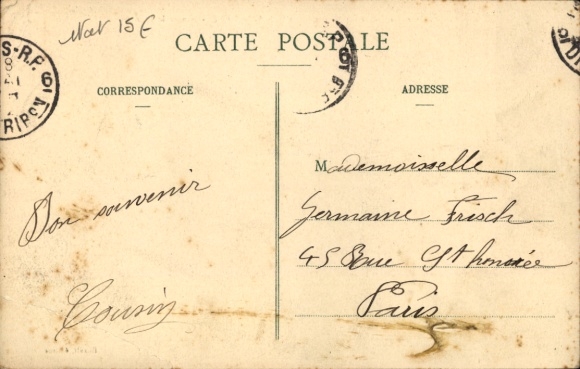 Nov 15€
CARTE POSTALE
CORRESPONDANCE
ADRESSE
Bon souvenir
Cousin
Mademoisselle
Germaine Frisch
45 Rue St honorée
Paris